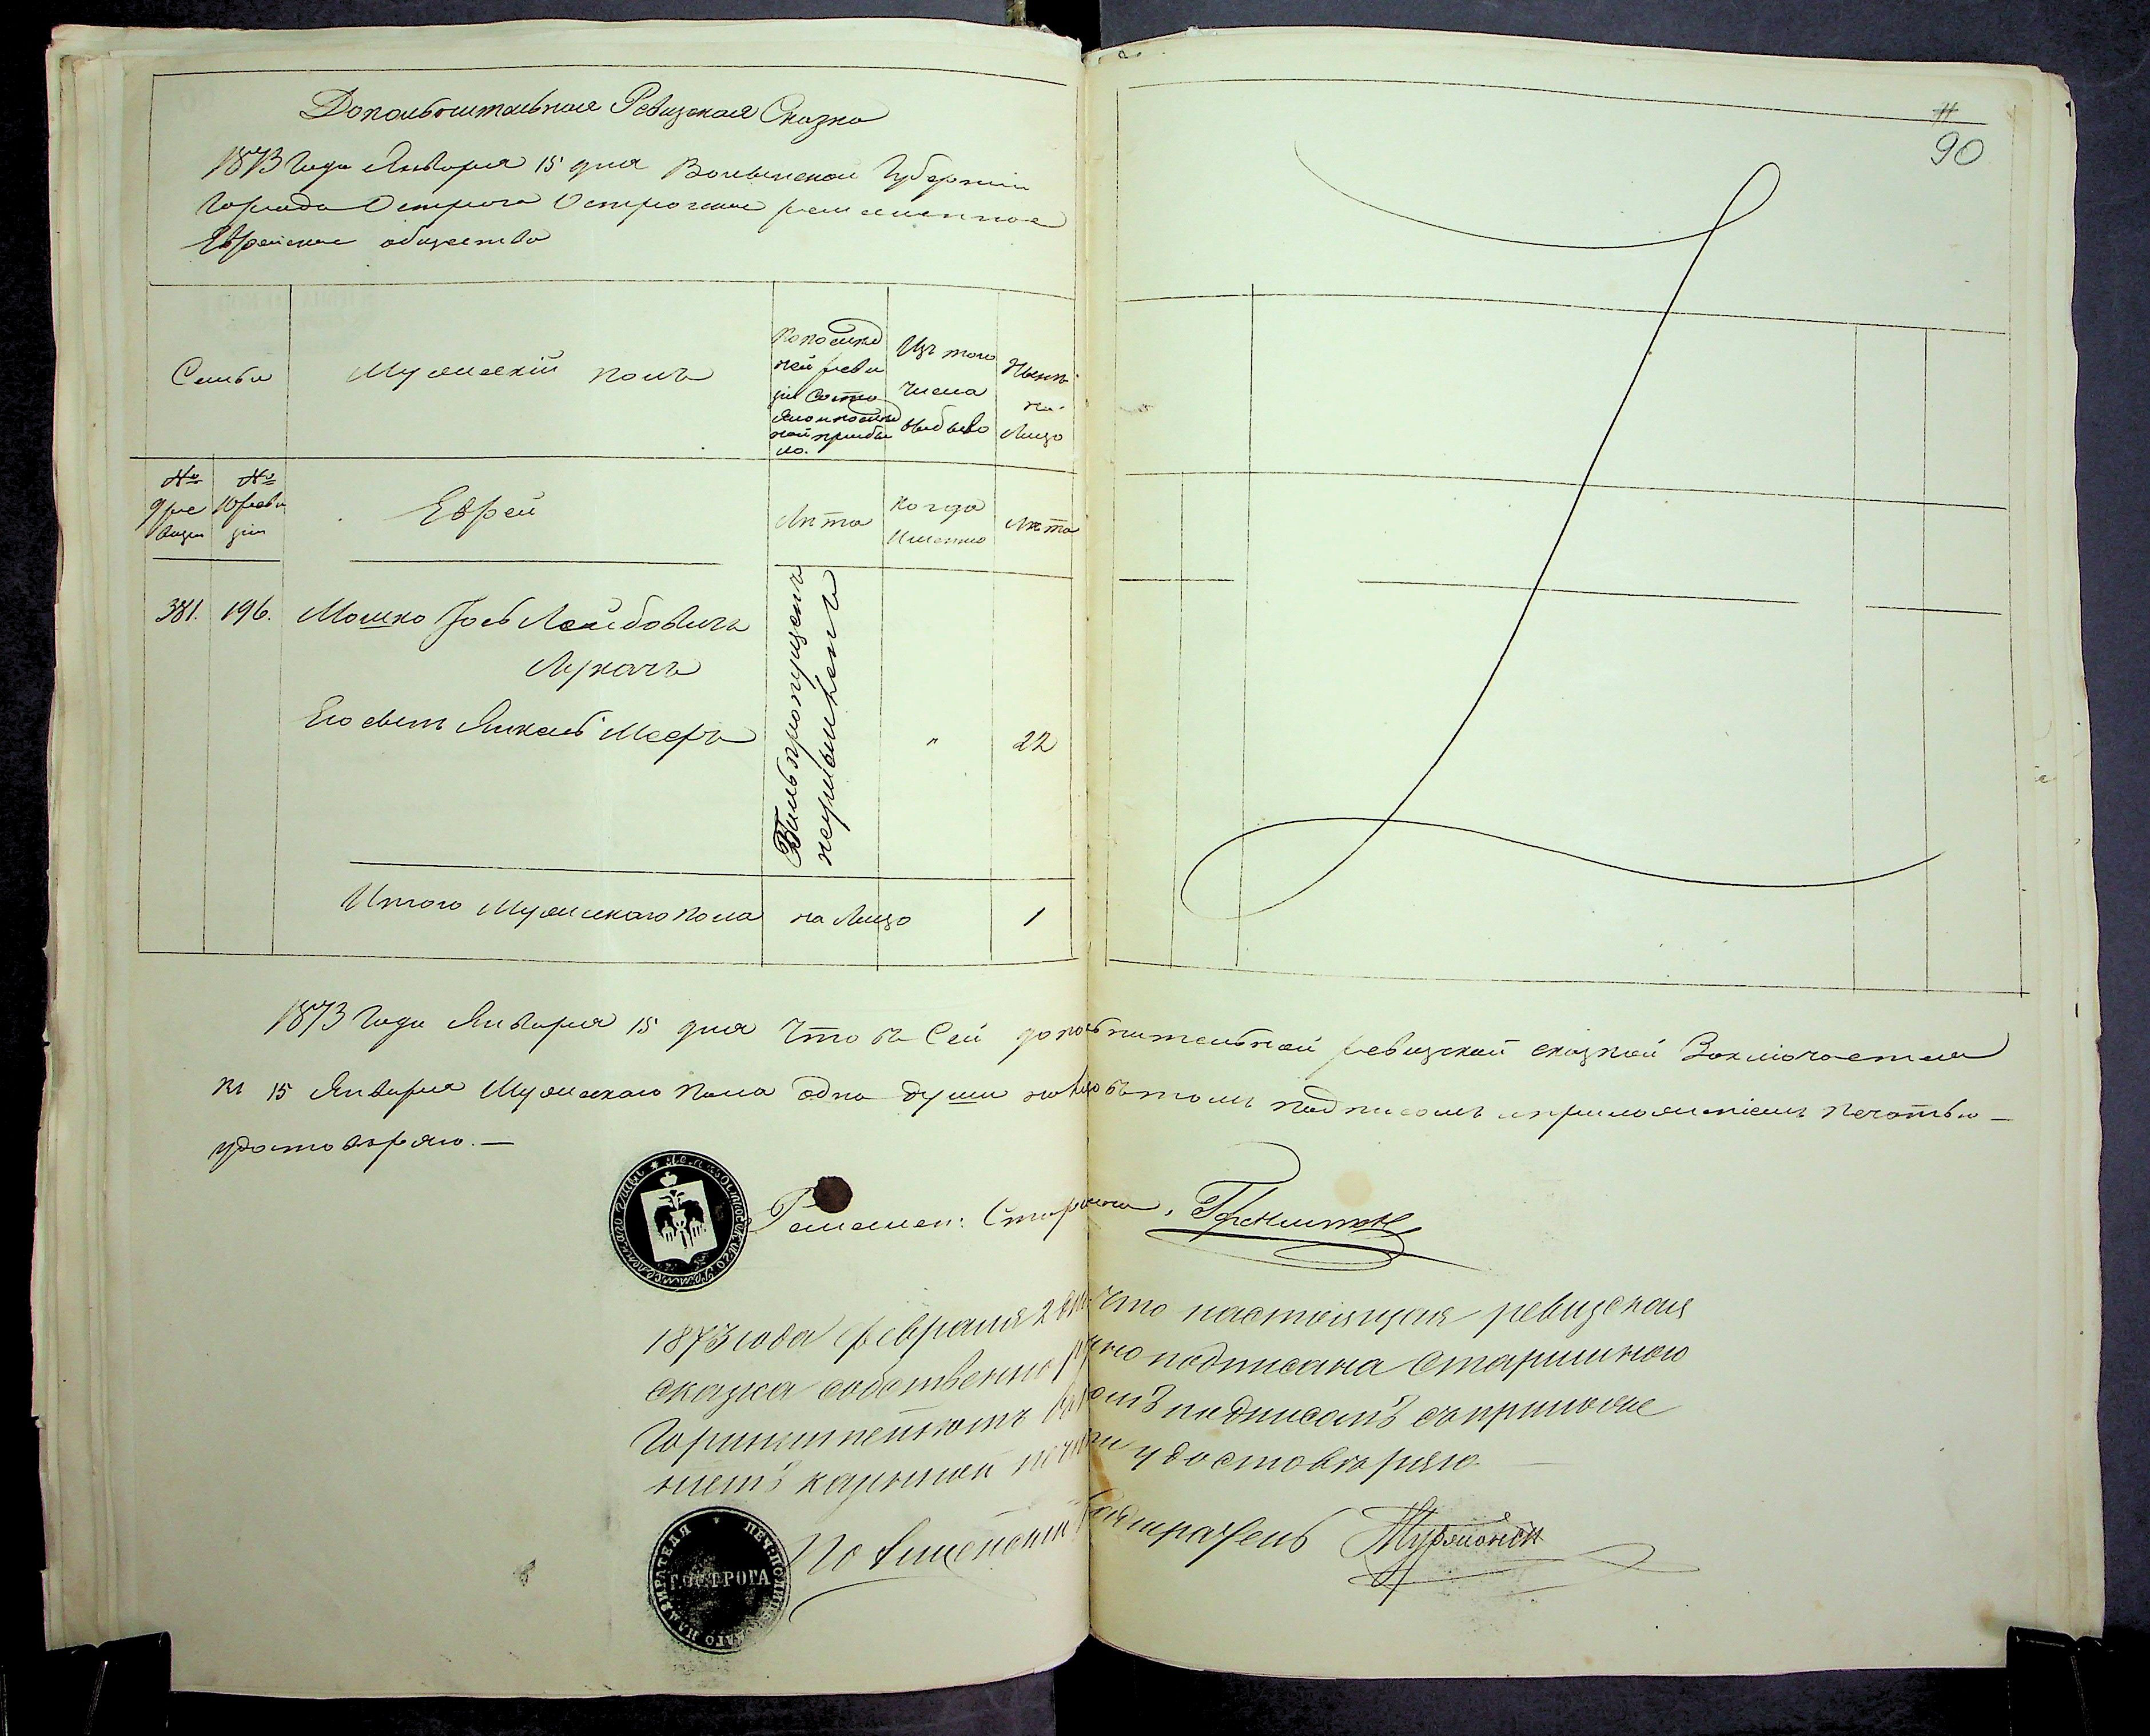 11
90
Дополнительная Ревизская Сказка
1873 года Января 15 дня Волынской Губернии
Города Острога Острожское ремесленное
Еврейское общество
Семьи
Мужеский полъ
По послед
ней реви
зіи состо
яло и после
ной прибы
ло.
Изъ того
числа
выбыло
Нынѣ
на-
лицо
№
9 ре
визіи
№
10 реви
зіи
Евреи
Лѣта
Когда
именно
Лѣта
381. 196. Мошко Іось Лейбовичъ
Его сынъ Янкель Мееръ
Былъ пропущенъ
"
22
Итого мужескаго пола на лицо 1
1873 года Января 15 дня что въ сей дополнительной ревизской сказкой заключается
къ 15 Января мужескаго пола одна души въ томъ подписомъ и приложеніемъ печатью —
удостовѣряю. —
Ремеслен: Староста,
1873 года февраля 2 дня что настоящая ревизская
сказка собственно ручно подписана Старшиною
въ томъ подписомъ съ приложе
ніемъ казенной печати удостовѣряю
Полицейскій Надзиратель
Г. ОСТРОГА